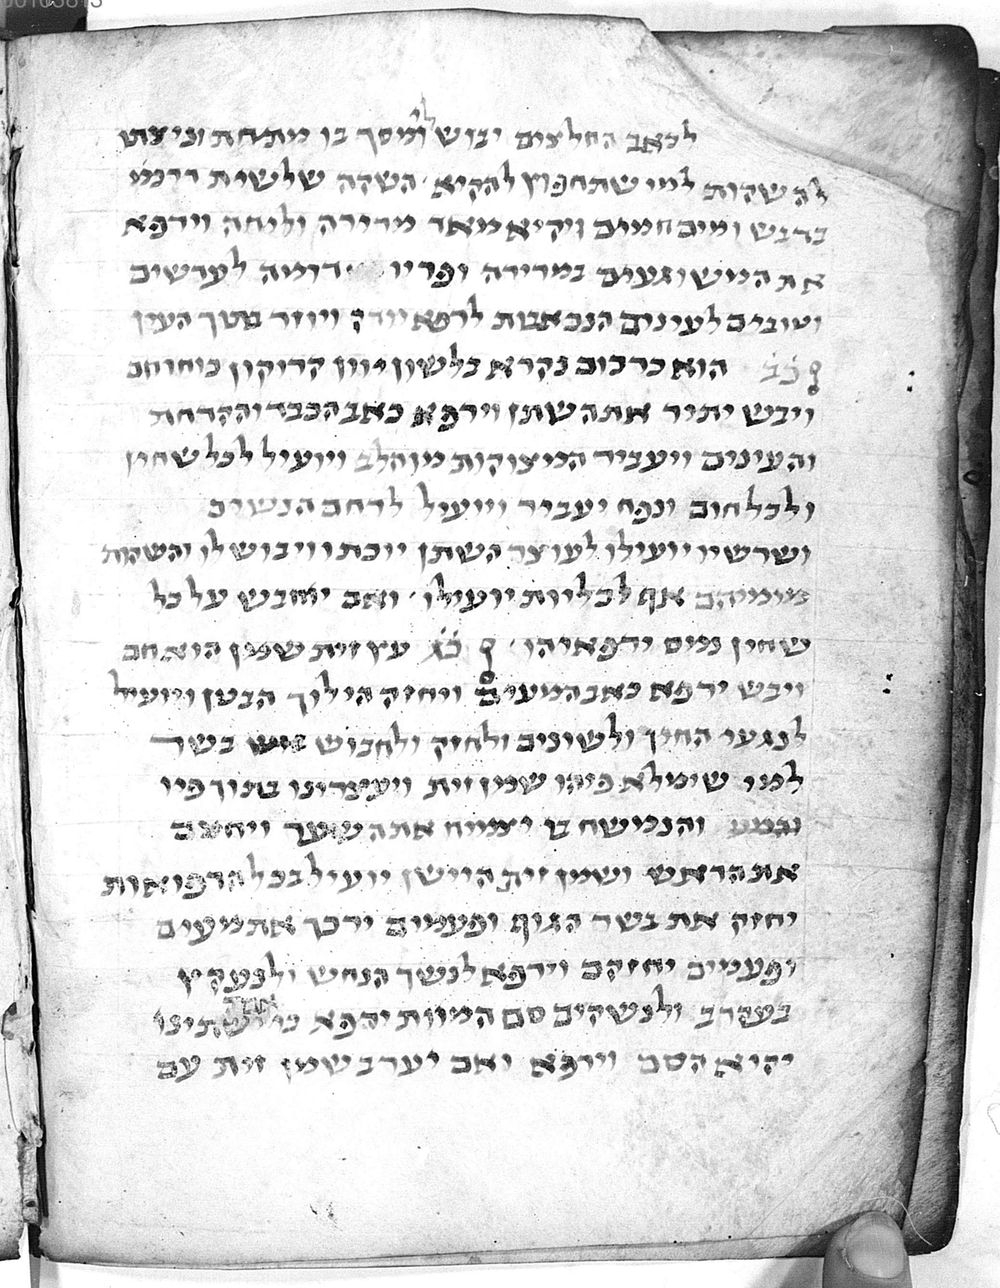 לכאב החלצים יבושל ומסך בו מתחת וניצתו
להשקות למי שתחפוץ להקיא השקה שלשית דרכמי
בדבש ומים חמים ויקיא מאד מרירה וליחה וירפא
את המשוגעים במרירה ופריו דומה לעדשים
וטובים לעינים הנכאבות לרפא ויזר בתוך העין
הוא כרכום נקרא בלשון יוון קרוקון כוחו חם
ויבש יתיר את השתן וירפא כאב הכבד והקדחת
והעינים ויעביר המיצוקות מן הלב ויועיל לכל שחין
ולכל חום ונפח יעביר ויועיל לרחם הנשים
ושרשיו יועילו לעוצר השתן יוכתו ויבושלו והשקות
מימיהם אף לכליות יועילו ואם יחבש על כל
שחין נמיס ירפאיהו ק׳ כ׳ג׳ עץ זית שמן הוא חם
ויבש ירפא כאב המעים ויחזק הילוך הבטן ויועיל
לנגעי החיך ולשינים ולחזק ולחבוש בשר
למי שימלא פיהו שמן זית ויעצרינו בתוך פיו
והנמשח בו יצמיח את השער ויחזק
את הראש ושמן זית הישן יועיל בכל הרפואות
יחזק את בשר הגוף ופעמים ירכך את מעים
ופעמים יחזקם וירפא לנשך הנחש ולנעקץ
בעקרב ולנשקים סם המוות ירפא כי אחר שתינו
יקיא הסם וירפא ואם יערב שמן זית עם